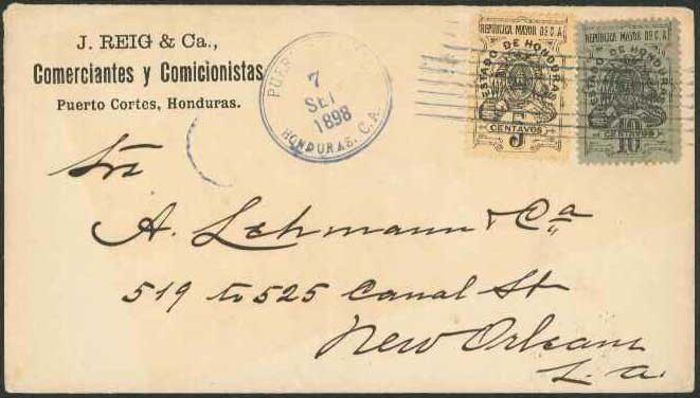 J. REIG & Ca.,
Comerciantes y Comicionistas
Puerto Cortes, Honduras.
7
SET
1898
HONDURAS. C.A.
REPUBLICA MAYOR DE C.A.
ESTADO DE HONDURAS
5
CENTAVOS
REPUBLICA MAYOR DE C.A.
ESTADO DE HONDURAS
CENTAVOS
10
A. Lehmann & Ca
519 to 525 Canal St
New Orleans
La.